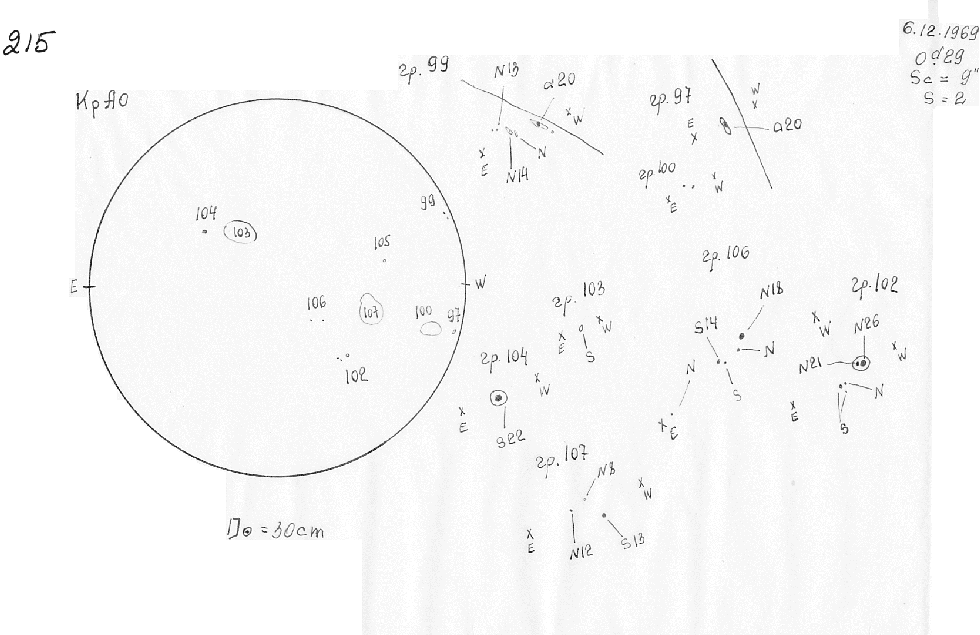 215
6.12.1969
0ᵈ.29
Sc = 9"
S = 2
КрАО
гр. 99
N13
a20
W
E
N14
N
гр. 97
W
E
a20
гр 100
W
E
99
104
103
105
E
W
106
107
100
97
102
гр. 106
N18
S14
N
N
S
E
W
гр. 102
N26
W
N21
N
E
S
гр. 103
W
E
S
гр. 104
W
E
S22
гр. 107
N8
W
E
N12
S13
D⊙ = 30cm